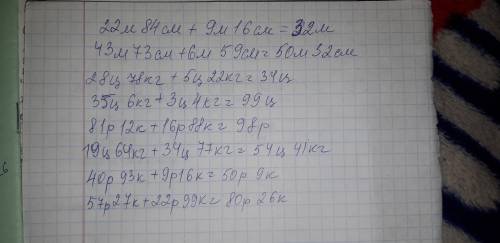 22м 84см + 9м 16см = 32м
43м 73см + 6м 59см = 50м 32см
28ц 78кг + 5ц 22кг = 34ц
35ц 6кг + 3ц 4кг = 99ц
81р 12к + 16р 88к = 98р
19ц 64кг + 34ц 77кг = 54ц 41кг
40р 93к + 9р 16к = 50р 9к
57р 27к + 22р 99к = 80р 26к
6